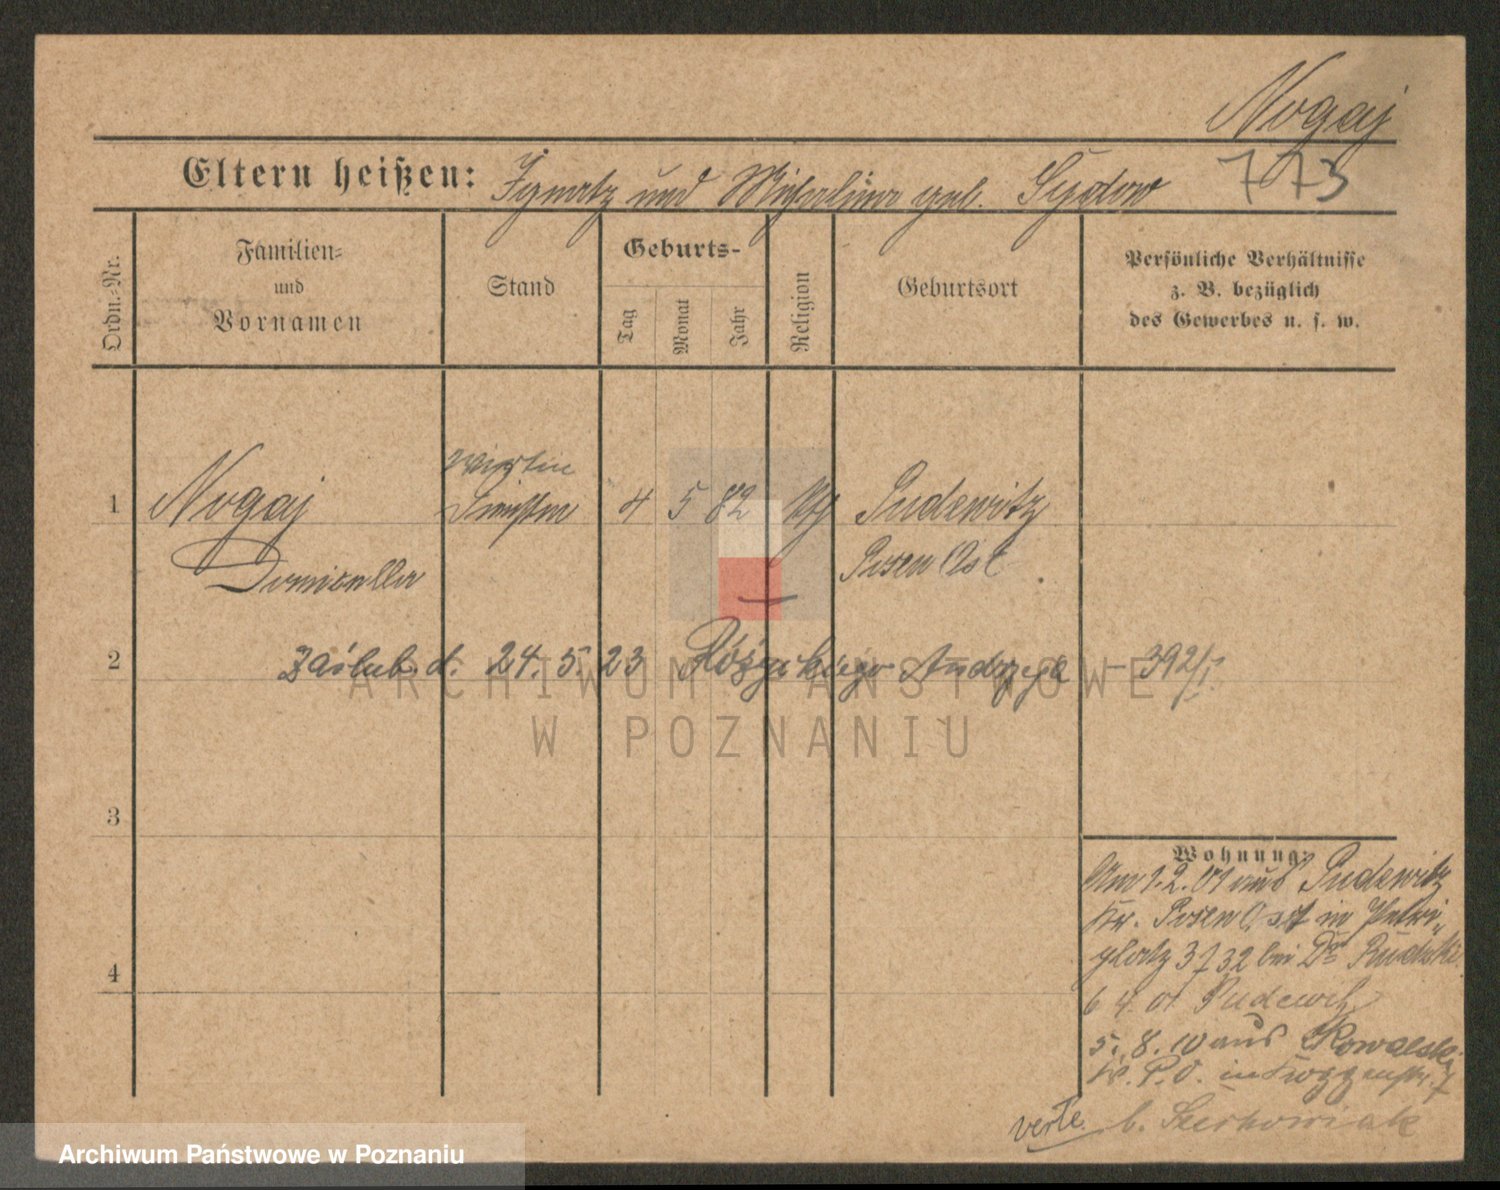 Nogaj
773
Eltern heißen: Ignatz und Michalina geb. Sydow
Ordn.-Nr.
Familien-
und
Vornamen
Stand
Geburts-
Tag
Monat
Jahr
Religion
Geburtsort
Persönliche Verhältnisse
z. B. bezüglich
des Gewerbes u. s. w.
Wirtin
1 Nogaj 4 5 82 kth Pudewitz
Posen Ost
2 zaślub. d. 24. 5. 23 Różyckiego Andrzeja – 392/I.
3
4
Wohnung:
Am 1.2.01 aus Pudewitz
Kr. Posen Ost in Petri-
platz 3 bei Dr Rudzki
6 4. 01 Pudewitz
5. 8. 10 aus Kowalski
Kr. P.O. in
verte. b.
ARCHIWUM PAŃSTWOWE
W POZNANIU
Archiwum Państwowe w Poznaniu